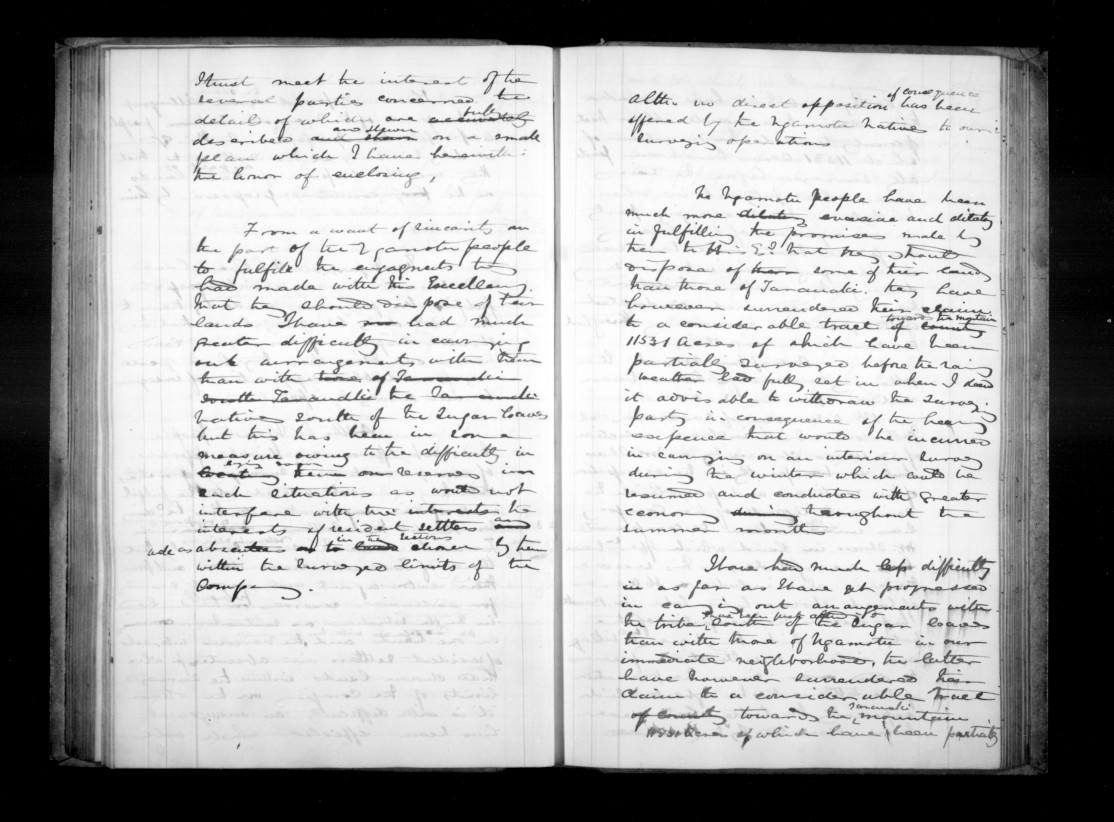 I trust meet the interest of the
several parties concerned the
detail of which are accurately fully
described and shewn and shewn on a small
plan which I have herewith
the honor of enclosing,
From a want of sincerity on
the part of the Ngamotu people
to fulfile the engagmts they
had made with His Excellency.
that they should dispose of their
lands I have had much
greater difficulty in carrying
out arrangements with them
than with those of Taranaki
south Taranaki the Taranaki
Natives South of the Sugar Loaves
but this has been in some
measure owing to the difficulty in
locating their own reserves in
such situations as would not
interfere with the interests the
interests of resident settlers and
as well as absentees or to lands chosen by them
within the surveyed limits of the
Compy.
altho no direct opposition of consequence has been
offered by the Ngamotu Natives to our
surveying operations
The Ngamotu People have been
much more dilatory evasive and dilatory
in fulfilling the promises made by
them to His Ex that they should
dispose of them some of their lands
than those of Taranaki. they have
however surrendered their claim
to a considerable tract of country toward the mountain
11531 Acres of which have been
partially surveyed before the rainy
weather had fully set in when I deemed
it advisable to withdraw the surveying
party in consequence of the heavy
expence that would be incurred
in carrying on an interior survey
during the winter which could be
resumed and conducted with greater
economy during throughout the
summer months
I have had much less difficulty
in as far as I have yet progressed
in carrying out arrangements with
the tribe south of the Sugar loaves
than with those of Ngamotu in our
immediate neighborhood, the latter
have however surrendered their
claim to a considerable tract
of country towards the Taranaki mountain
11531 Acres of which have been partially